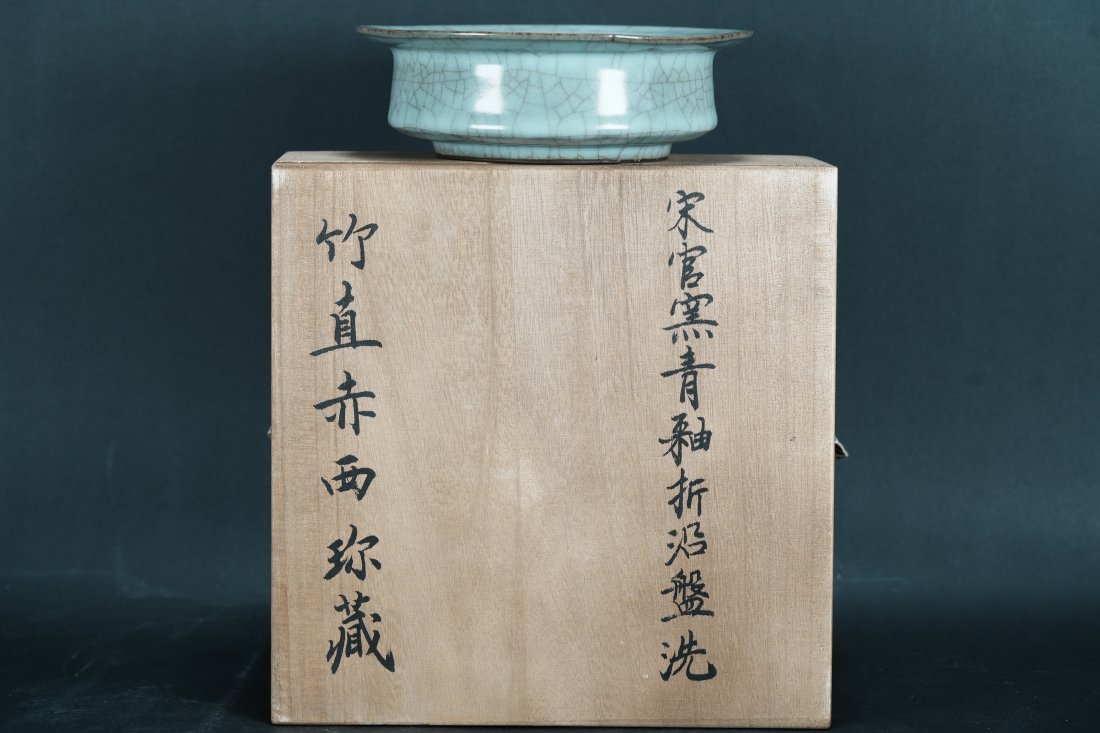 宋官窯青釉折沿盤洗
竹直赤西珎藏